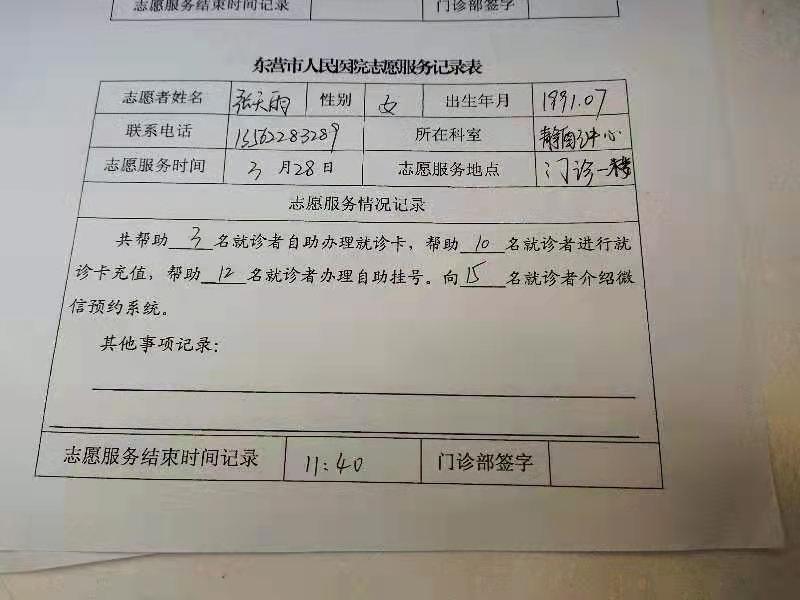 志愿服务结束时间记录 门诊部签字
东营市人民医院志愿服务记录表
志愿者姓名 张天雨 性别 女 出生年月 1991.07
联系电话 13562283289 所在科室 静配中心
志愿服务时间 3月28日 志愿服务地点 门诊一楼
志愿服务情况记录
共帮助 3 名就诊者自助办理就诊卡，帮助 10 名就诊者进行就
诊卡充值，帮助 12 名就诊者办理自助挂号。向 15 名就诊者介绍微
信预约系统。
其他事项记录：
志愿服务结束时间记录 11:40 门诊部签字